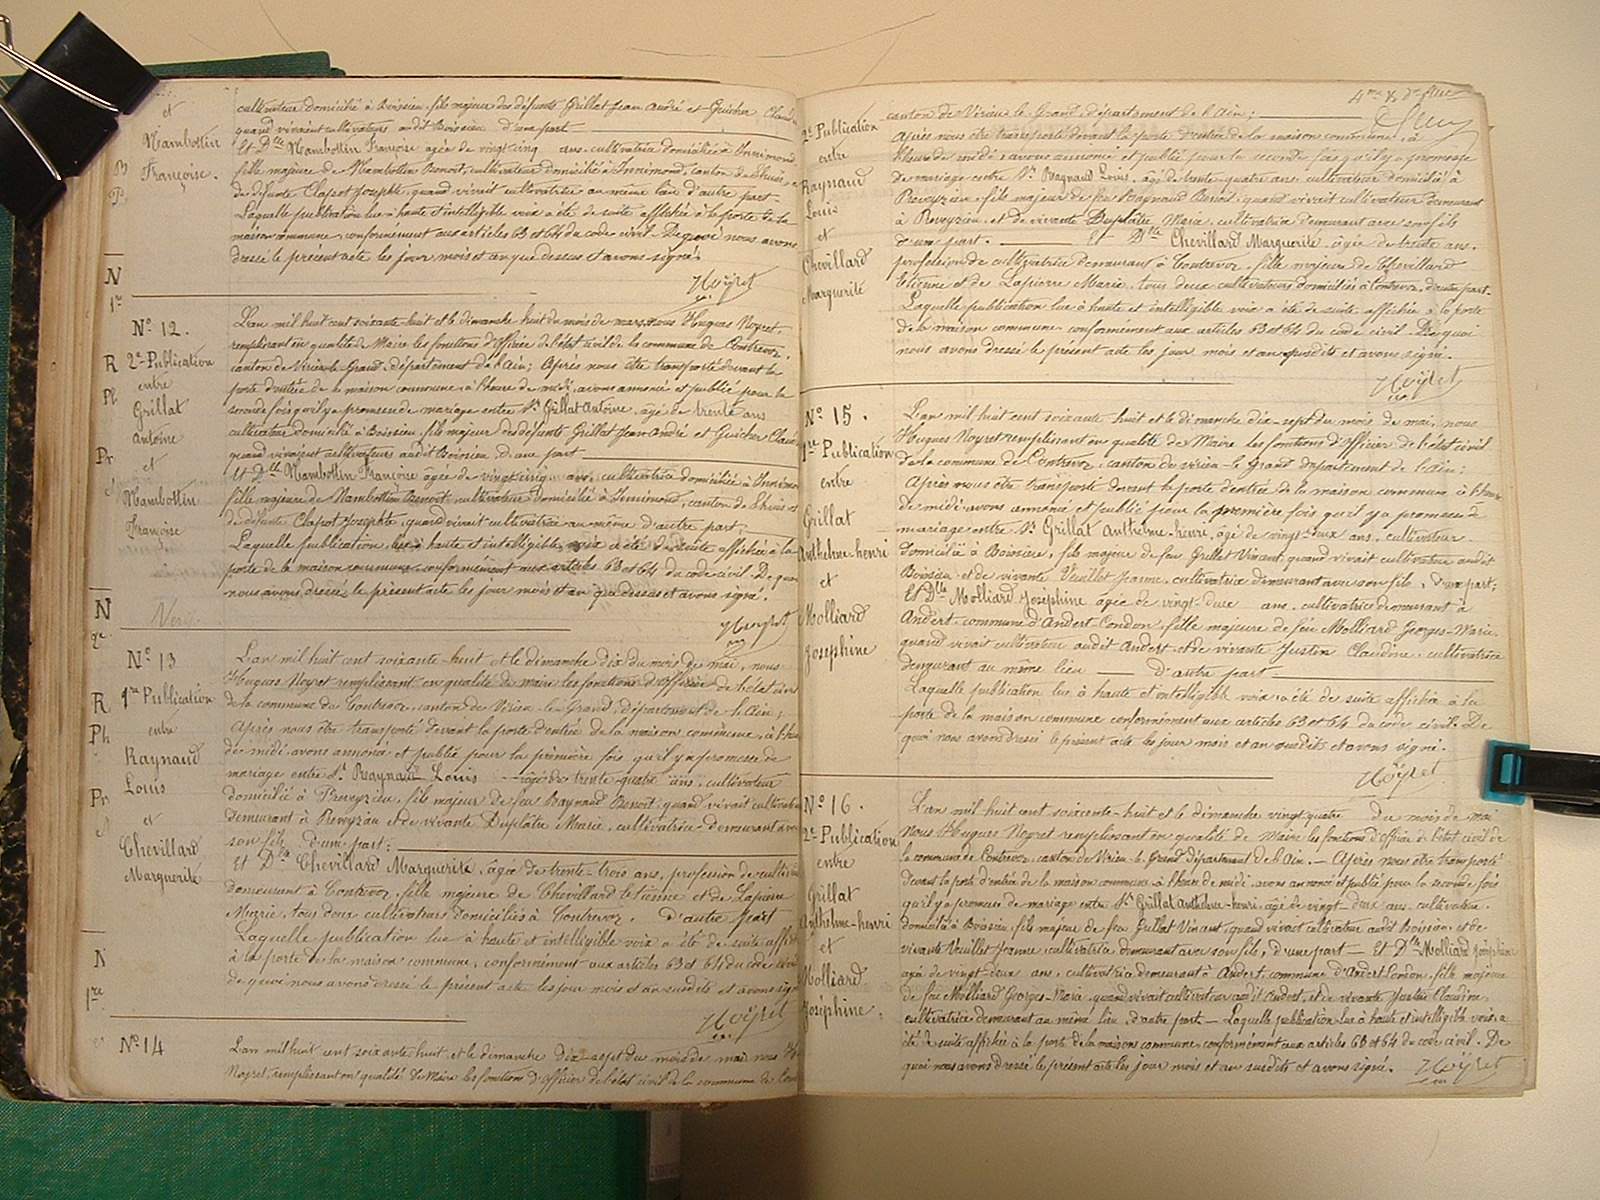 et
Mambottin
Françoise.
cultivateur domicilié à Boissieu, fils majeur des défunts Grillat Jean André et Guicher
quand vivaient cultivateurs audit Boissieu d'une part
Et Dlle Mambottin Françoise agée de vingt cinq ans cultivatrice domiciliée à Innimond
fille majeure de Mambottin Benoit, cultivateur domicilié à Innimond, canton de
de défunte Clapot Josephte, quand vivait cultivatrice au même lieu d'autre part.
Laquelle publication lue à haute et intelligible voix a été de suite affichée à la porte de la
maison commune, conformément aux articles 63 et 64 du code civil. De quoi nous avons
dressé le présent acte les jour mois et an que dessus et avons signé.
Noyret
No 12.
2e Publication
entre
Grillat
Antoine
et
Mambottin
Françoise
L'an mil huit cent soixante-huit et le dimanche huit du mois de mars, nous Hugues Noyret,
remplissant en qualité de Maire les fonctions d'officier de l'état civil de la commune de Contrevoz,
canton de Virieu-le-Grand, département de l'Ain; Après nous être transporté devant la
porte d'entrée de la maison commune, à l'heure de midi, avons annoncé et publié pour la
seconde fois qu'il y a promesse de mariage entre Sr Grillat Antoine, âgé de trente ans
cultivateur domicilié à Boissieu, fils majeur des défunts Grillat Jean-André et Guicher
quand vivaient cultivateurs audit Boissieu d'une part
Et Dlle Mambottin Françoise âgée de vingt cinq ans, cultivatrice domiciliée à
fille majeure de Mambottin Benoit, cultivateur domicilié à Innimond, canton de
de défunte Clapot Josephte, quand vivait cultivatrice au même d'autre part;
Laquelle publication, lue à haute et intelligible voix a été de suite affichée à la
porte de la maison commune conformément aux articles 63 et 64 du code civil. De quoi
nous avons dressé le présent acte les jour mois et an que dessus et avons signé.
Noyret
No 13
1re Publication
entre
Raynaud
Louis
et
Chevillard
Marguerite
L'an mil huit cent soixante-huit et le dimanche dix du mois de mai, nous
Hugues Noyret remplissant en qualité de maire les fonctions d'officier de l'état civil
de la commune de Contrevoz, canton de Virieu-le-Grand, département de l'Ain;
Après nous être transporté devant la porte d'entrée de la maison commune, à
de midi avons annoncé et publié pour la première fois qu'il y a promesse de
mariage entre Sr Raynaud Louis âgé de trente-quatre ans, cultivateur
domicilié à Preveyzieu, fils majeur de feu Raynaud Benoit quand vivait
demeurant à Preveyzieu et de vivante Duplâtre Marie, cultivatrice demeurant avec
son fils d'une part;
Et Dlle Chevillard Marguerite, âgée de trente-trois ans, profession de
demeurant à Contrevoz, fille majeure de Chevillard Etienne et de Lapierre
Marie, tous deux cultivateurs domiciliés à Contrevoz. d'autre part
Laquelle publication lue à haute et intelligible voix a été de suite
à la porte de la maison commune, conformément aux articles 63 et 64 du code civil
de quoi nous avons dressé le présent acte les jour mois et an susdits et avons signé
Noyret
No 14
L'an mil huit cent soixante huit, et le dimanche dix-sept du mois de mai nous
Noyret, remplissant en qualité de Maire les fonctions d'officier de l'état civil de la commune de
2e Publication
entre
Raynaud
Louis
et
Chevillard
Marguerite
canton de Virieu-le-Grand, département de l'Ain;
Après nous être transporté devant la porte d'entrée de la maison commune, à
l'heure de midi, avons annoncé et publié pour la seconde fois qu'il y a promesse
de mariage entre Sr Raynaud Louis, âgé de trente-quatre ans cultivateur domicilié à
Preveyzieu, fils majeur de feu Raynaud Benoit, quand vivait cultivateur demeurant
à Preveyzieu, et de vivante Duplâtre Marie, cultivatrice demeurant avec son fils
d'une part. Et Dlle Chevillard Marguerite âgée de trente ans.
profession de cultivatrice demeurant à Contrevoz, fille majeure de Chevillard
Etienne et de Lapierre Marie, tous deux cultivateurs domiciliés à Contrevoz, d'autre part.
Laquelle publication lue à haute et intelligible voix a été de suite affichée à la porte
de la maison commune conformément aux articles 63 et 64 du code civil. De quoi
nous avons dressé le présent acte les jour mois et an susdits et avons signé.
Noyret
No 15.
1re Publication
entre
Grillat
Anthelme-henri
et
Molliard
Josephine
L'an mil huit cent soixante-huit et le dimanche dix-sept du mois de mai, nous
Hugues Noyret remplissant en qualité de Maire les fonctions d'officier de l'état civil
de la commune de Contrevoz, canton de Virieu-le-Grand département de l'Ain;
Après nous être transporté devant la porte d'entrée de la maison commune à l'heure
de midi, avons annoncé et publié pour la première fois qu'il y a promesse de
mariage entre Sr Grillat Anthelme-henri, âgé de vingt-deux ans, cultivateur
domicilié à Boissieu, fils majeur de feu Grillat Vincent, quand vivait cultivateur audit
Boissieu et de vivante Veuillet Jeanne, cultivatrice demeurant avec son fils, d'une part;
Et Dlle Molliard Josephine âgée de vingt-deux ans, cultivatrice demeurant à
Andert, commune d'Andert-Condon, fille majeure de feu Molliard Georges-Marie
quand vivait cultivateur audit Andert, et de vivante Justin Claudine, cultivatrice
demeurant au même lieu d'autre part
Laquelle publication lue à haute et intelligible voix a été de suite affichée à la
porte de la maison commune conformément aux articles 63 et 64 du code civil. De
quoi nous avons dressé le présent acte les jour mois et an susdits et avons signé.
Noyret
No 16.
2e Publication
entre
Grillat
Anthelme-henri
et
Molliard
Joséphine.
L'an mil huit cent soixante-huit et le dimanche vingt-quatre du mois de mai
Nous Hugues Noyret remplissant en qualité de Maire les fonctions d'officier de l'état civil de
la commune de Contrevoz, canton de Virieu-le-Grand département de l'Ain. — Après nous être transporté
devant la porte d'entrée de la maison commune, à l'heure de midi, avons annoncé et publié pour la seconde fois
qu'il y a promesse de mariage entre Sr Grillat Anthelme-henri, âgé de vingt-deux ans, cultivateur
domicilié à Boissieu, fils majeur de feu Grillat Vincent, quand vivait cultivateur audit Boissieu, et de
vivante Veuillet Jeanne, cultivatrice demeurant avec son fils, d'une part — Et Dlle Molliard Joséphine
âgée de vingt-deux ans, cultivatrice demeurant à Andert, commune d'Andert-Condon, fille majeure
de feu Molliard Georges-Marie, quand vivait cultivateur audit Andert, et de vivante Justin Claudine,
cultivatrice demeurant au même lieu, d'autre part — Laquelle publication lue à haute et intelligible voix a
été de suite affichée à la porte de la maison commune conformément aux articles 63 et 64 du code civil. De
quoi nous avons dressé le présent acte les jour mois et an susdits et avons signé. Noyret